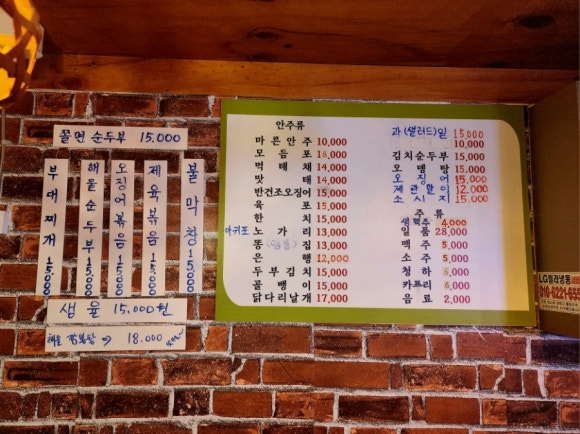 쫄면 순두부 15.000
부대찌개 15.000
해물순두부 15.000
오징어볶음 15.000
제육볶음 15.000
불막창 15.000
생율 15,000원
해물 → 18.000
안주류
마른안주 10,000
모듬포 18,000
먹태채 14,000
맛태 14,000
반건조오징어 15,000
육포 15,000
한치 15,000
아귀포 노가리 13,000
똥집 13,000
은행 12,000
두부김치 15,000
골뱅이 15,000
닭다리날개 17,000
과(샐러드)일 15,000
10,000
김치순두부 15,000
오뎅탕 15,000
오징어 15,000
계란말이 12,000
소시지 15,000
주류
생맥주 4,000
일품 28,000
맥주 5,000
소주 5,000
청하 6,000
카프리 6,000
음료 2,000
LG빌라냉동
010-6221-655